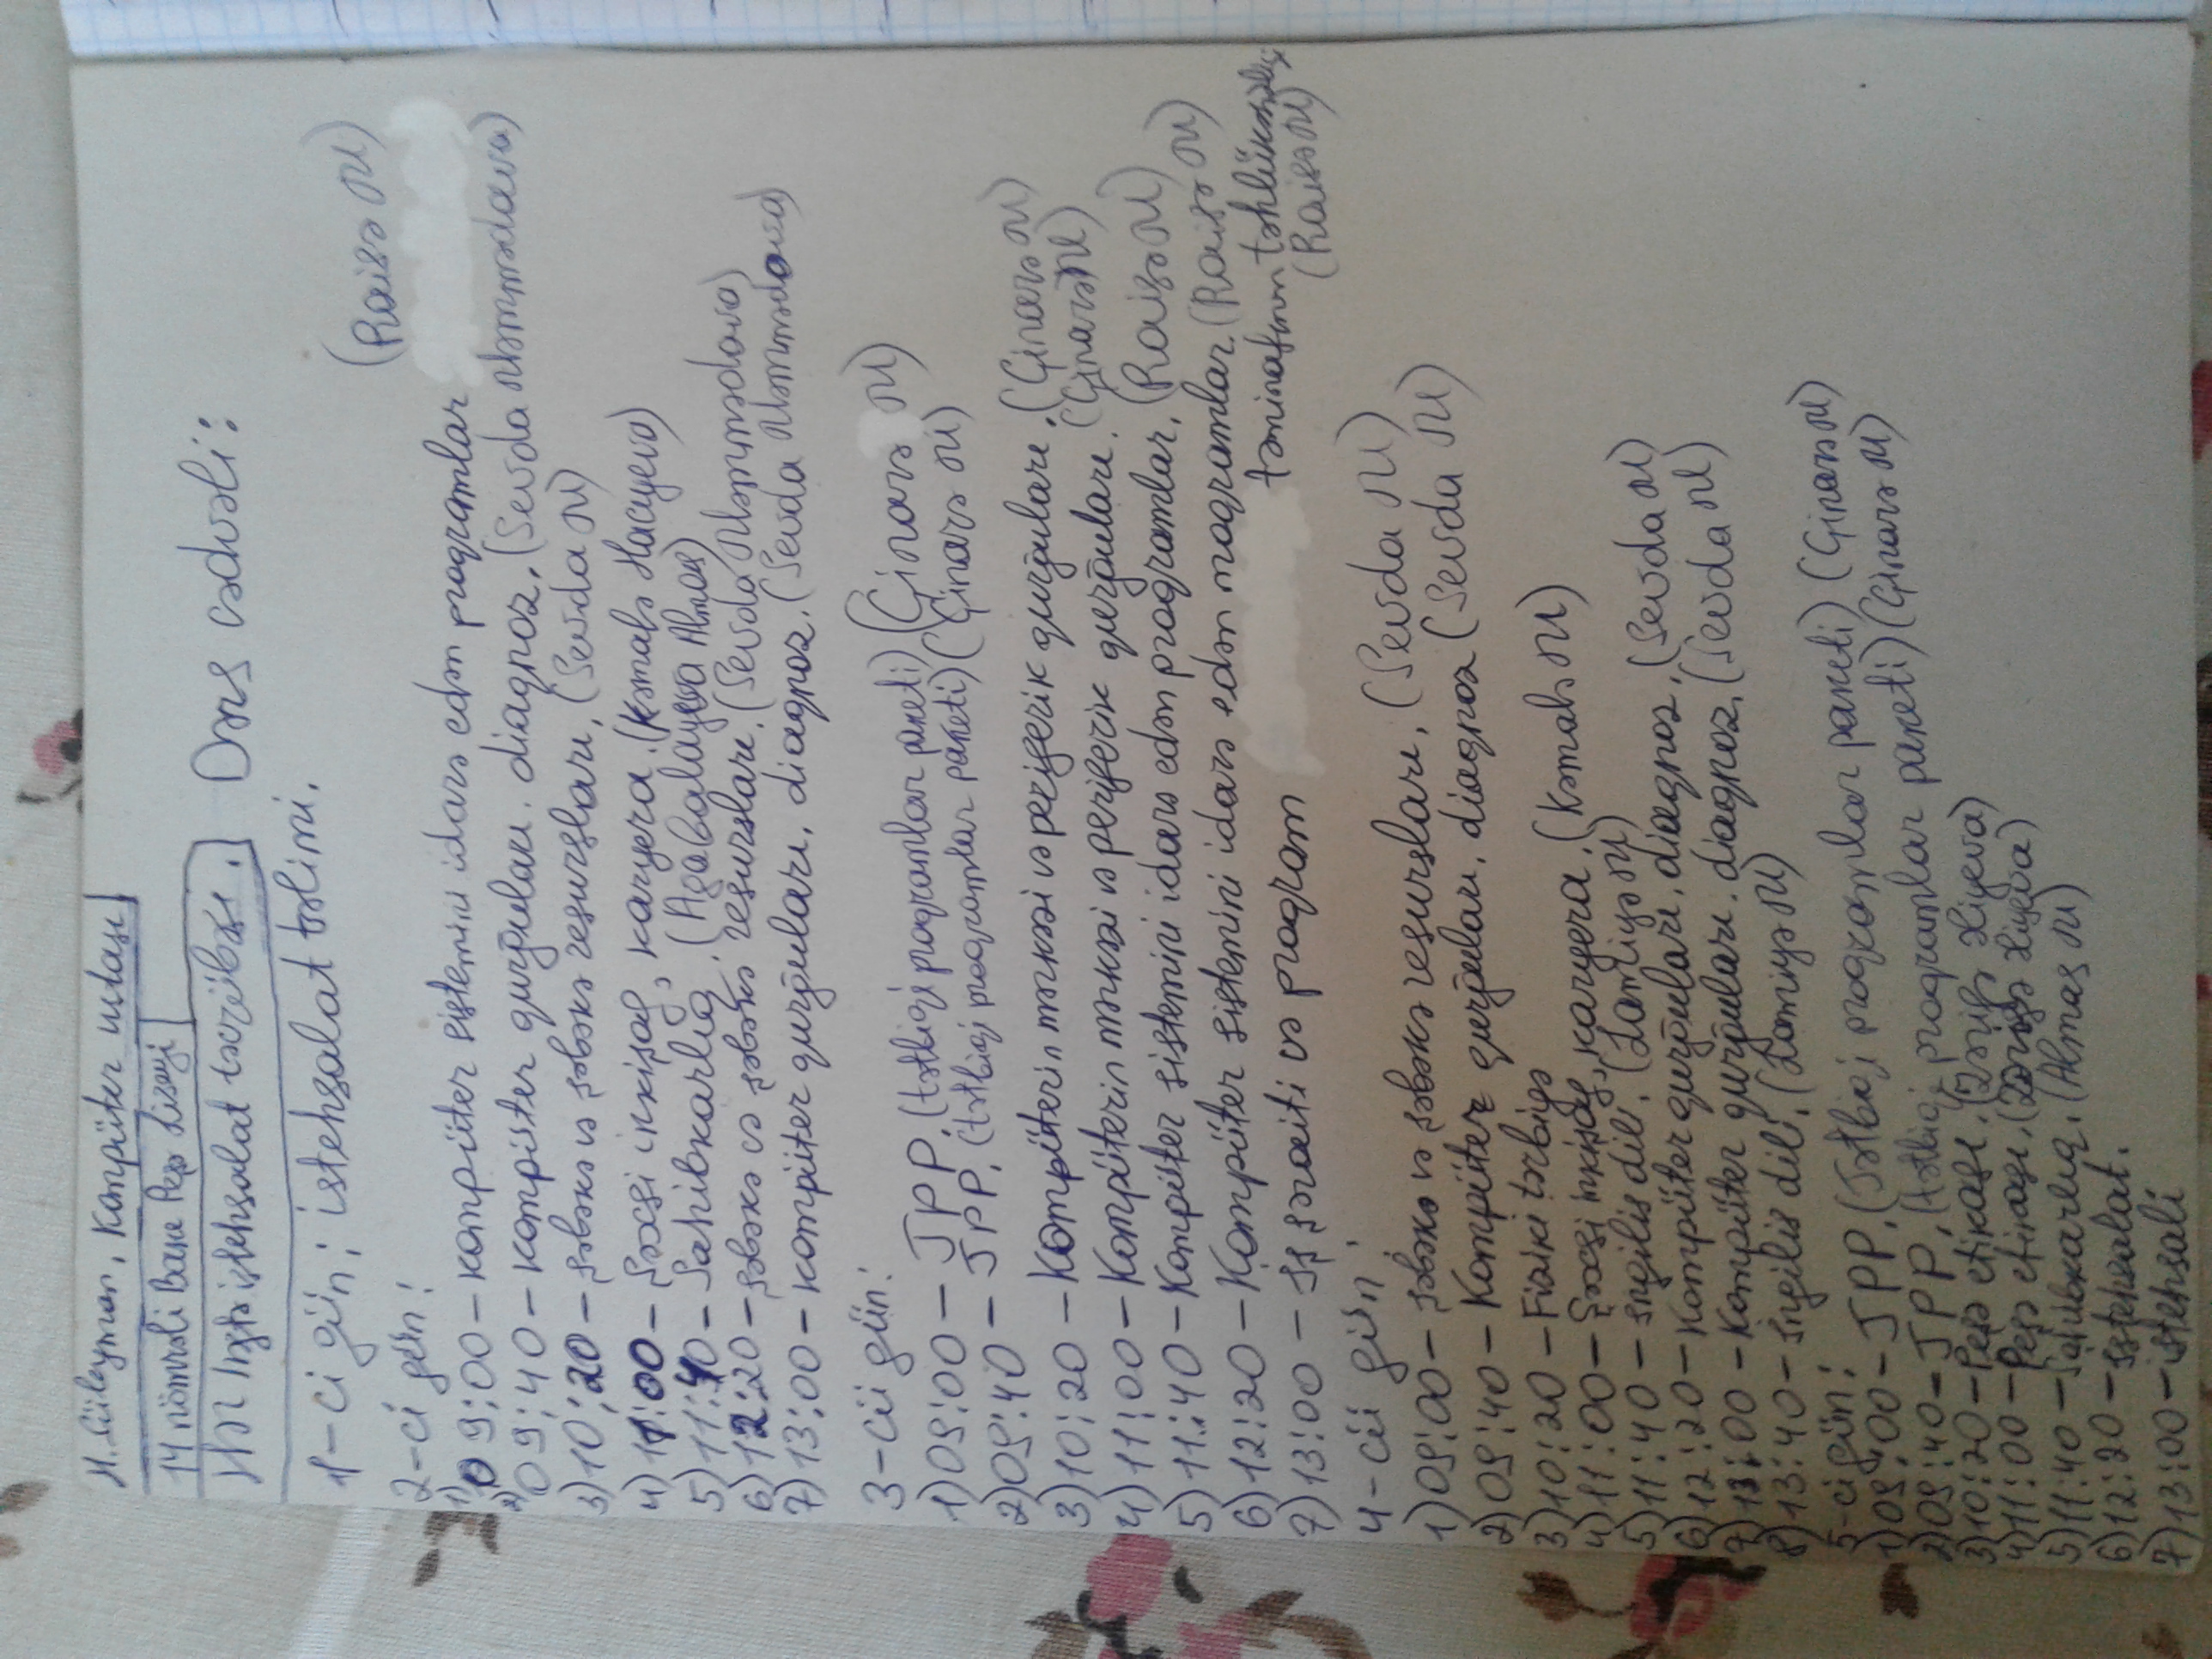 H. Süleyman, Kompüter ustası
14 nömrəli Bakı Peşə Liseyi
Hər həftə istehsalat təcrübəsi.
Dərs cədvəli:
1-ci gün; istehsalat təlimi.
2-ci gün:
(Raisə M)
1) 09:00 – kompüter sistemini idarə edən proqramlar
2) 09:40 – kompüter qurğuları. diaqnoz. (Sevda Məmmədova)
3) 10:20 – şəbəkə və şəbəkə resursları. (Sevda M)
4) 11:00 – Şəxsi inkişaf, karyera. (Kəmalə Hacıyeva)
5) 11:40 – Sahibkarlıq. (Ağabalayeva Almas)
6) 12:20 – şəbəkə və şəbəkə resursları. (Sevda Məmmədova)
7) 13:00 – kompüter qurğuları. diaqnoz. (Sevda Məmmədova)
3-cü gün:
1) 09:00 – TPP. (tətbiqi proqramlar paketi) (Çinarə M)
2) 09:40 – TPP. (tətbiqi proqramlar paketi) (Çinarə M)
3) 10:20 – Kompüterin mərkəzi və periferik qurğuları. (Çinarə M)
4) 11:00 – Kompüterin mərkəzi və periferik qurğuları. (Çinarə M)
5) 11:40 – Kompüter sistemini idarə edən proqramlar. (Raisə M)
6) 12:20 – Kompüter sistemini idarə edən proqramlar. (Raisə M)
7) 13:00 – İş şəraiti və proqram təminatının təhlükəsizliyi
(Raisə M)
4-cü gün:
1) 09:00 – şəbəkə və şəbəkə resursları. (Sevda M)
2) 09:40 – Kompüter qurğuları. diaqnoz (Sevda M)
3) 10:20 – Fiziki tərbiyə
4) 11:00 – Şəxsi inkişaf, karyera. (Kəmalə M)
5) 11:40 – İngilis dili. (Lamiyə M)
6) 12:20 – Kompüter qurğuları. diaqnoz. (Sevda M)
7) 13:00 – Kompüter qurğuları. diaqnoz. (Sevda M)
8) 13:40 – İngilis dili. (Lamiyə M)
5-ci gün:
1) 09:00 – TPP. (Tətbiqi proqramlar paketi) (Çinarə M)
2) 09:40 – TPP. (tətbiqi proqramlar paketi) (Çinarə M)
3) 10:20 – Peşə etikası. (Zərifə Əliyeva)
4) 11:00 – Peşə etikası. (Zərifə Əliyeva)
5) 11:40 – Sahibkarlıq. (Almaş M)
6) 12:20 – istehsalat.
7) 13:00 – istehsali